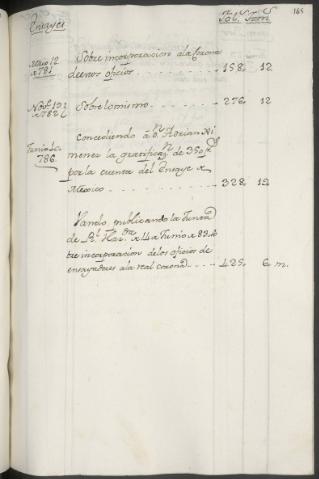 165
Ensayes
Fol.s Tom.
Mayo 12
de 781
Sobre incorporacion ala Corona
de estos oficios 158, 12
Nov.e 19
de 782
Sobre lo mismo 276, 12
Junio
786
concediendo a D.n Florian Xi
menez la gratificaz.n de 350 p.s
por la cuenta del Ensaye de
Mexico 328, 12
Vando publicando la
de R.l 14 de Junio de 83
bre incorporacion de los oficios de
ensayadores ala real corona 425, 6 m.